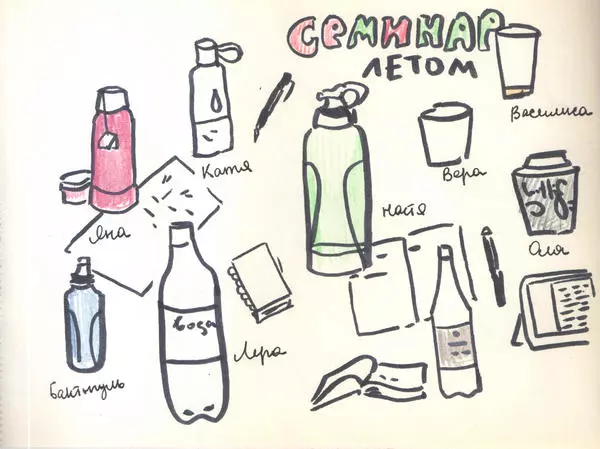 СЕМИНАР
ЛЕТОМ
Василиса
Катя
Вера
Настя
Яна
Оля
вода
Лера